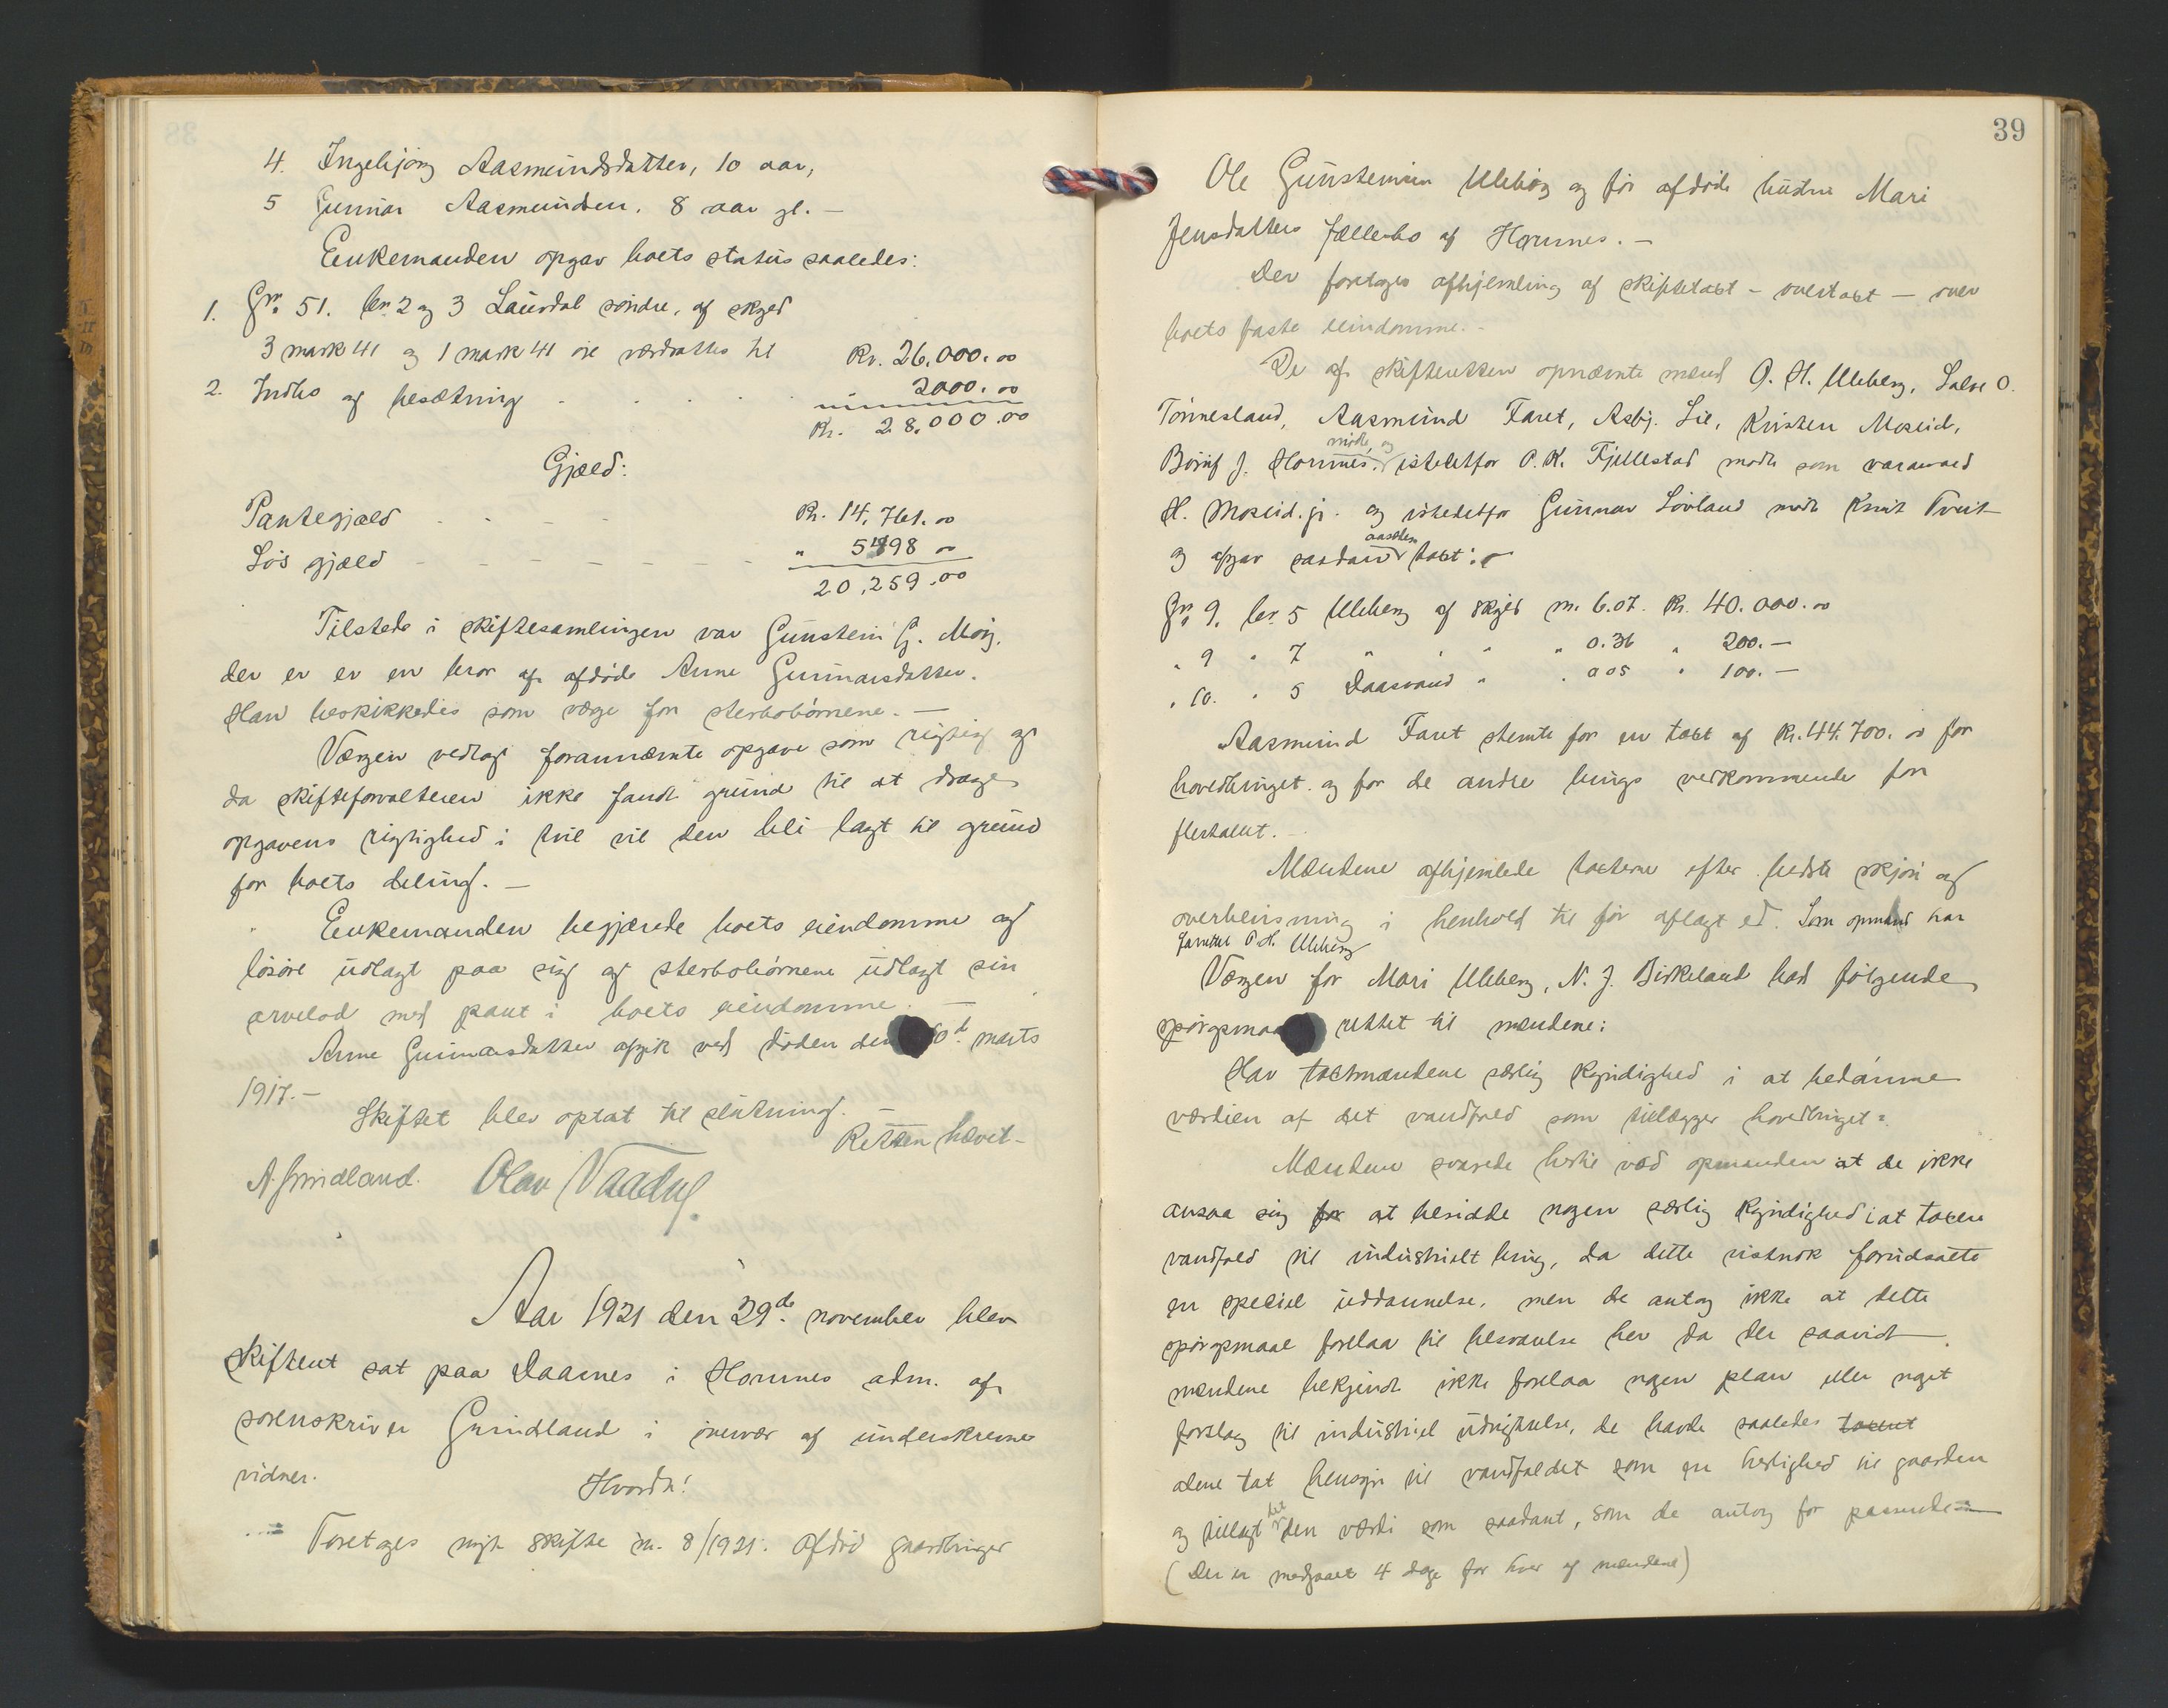 4. Ingebjørg Aasmundsdatter, 10 aar,
5 Gunnar Aasmundsen. 8 aar gl. —
Enkemanden opgav boets status saaledes:
1. Gn. 51. bn. 2 og 3 Lausdal søndre, af skyld
3 mark 41 og 1 mark 41 øre værdsattes til Kr. 26.000.00
2. Indbo og besætning " 2000.00
Kr. 28.000.00
Gjæld:
Pantegjæld Kr. 14,761.00
Løs gjæld " 5498 00
20,259.00
Tilstede i skiftesamlingen var Gunstein G. Moi,
der er er en bror af afdøde Anne Gunnarsdatter.
Han beskikkedes som værge for sterbobørnene. —
Værgen vedtog forannævnte opgave som rigtig og
da skifteforvalteren ikke fandt grund til at drage
opgavens rigtighed i tvil vil den bli lagt til grund
for boets deling. —
Enkemanden begjærede boets eiendomme og
løsøre udlagt paa sig og sterbobørnene udlagt sin
arvelod med pant i boets eiendomme. —
Anne Gunnarsdatter afgik ved døden den 10d. marts
1917. —
Skiftet blev optat til slutning. —
Retten hævet —
A. Grindland. Olav Vaadny.
Aar 1921 den 29de november blev
skifteret sat paa Daasnes i Hornnes adm. af
sorenskriver Grindland i overvær af underskrevne
vidner.
Hvorda!
Foretoges nyt skifte nr. 8/1921. Afdød gaardbruger
39
Ole Gunsteinsen Uleberg og før afdøde hustru Mari
Jensdatters fællesbo af Hornnes. —
Der foretoges afhjemling af skiftetakst – overtakst – over
boets faste eiendomme. -
De af skifteretten opnævnte mænd O. H. Uleberg, Salve O.
Tønnesland, Aasmund Faret, Asbj. Lie, Kristen Moseid,
mødte og
Børuf J. Hornnes, istedetfor O. K. Fjellestad mødte som varamand
H. Moseid. jr. og istedetfor Gunnar Løvland mødte Knut Tveit
aasatten
og afgav saadan takst:
Gn. 9. bn. 5 Uleberg af skyld m. 6.07. Kr. 40.000.00
" 9 " 7 " " " 0.36 " 200.—
" 10. " 5 Daasvand " " 0 05 " 100.—
Aasmund Faret stemte for en takst af Kr. 44.700.00 for
hovedbruget og for de andre brugs vedkommende for
flertallet. —
Mændene afhjemlede taksterne efter bedste skjøn og
overbevisning i henhold til før aflagt ed. Som opmand har
fungert O. H. Uleberg
Værgen for Mari Uleberg, N. J. Birkeland had følgende
spørgsmaal rettet til mændene:
Har takstmændene særlig kyndighed i at bedømme
værdien af det vandfald som tillægger hovedbruget?
Mændene svarede hertil ved opmanden at de ikke
ansaa sig for at besidde nogen særlig kyndighed i at taxere
vandfald til industrielt brug, da dette vistnok forudsatte
en speciel uddannelse, men de antog ikke at dette
spørgsmaal forelaa til besvarelse her da der saavidt
mændene bekjendt ikke forelaa nogen plan eller noget
forslag til industriel udnyttelse, de havde saaledes taxert
alene tat hensyn til vandfaldet som en herlighed til gaarden
og tillagt det den værdi som saadant, som de antog for passende
(Der er medgaaet 4 dage for hver af mændene)